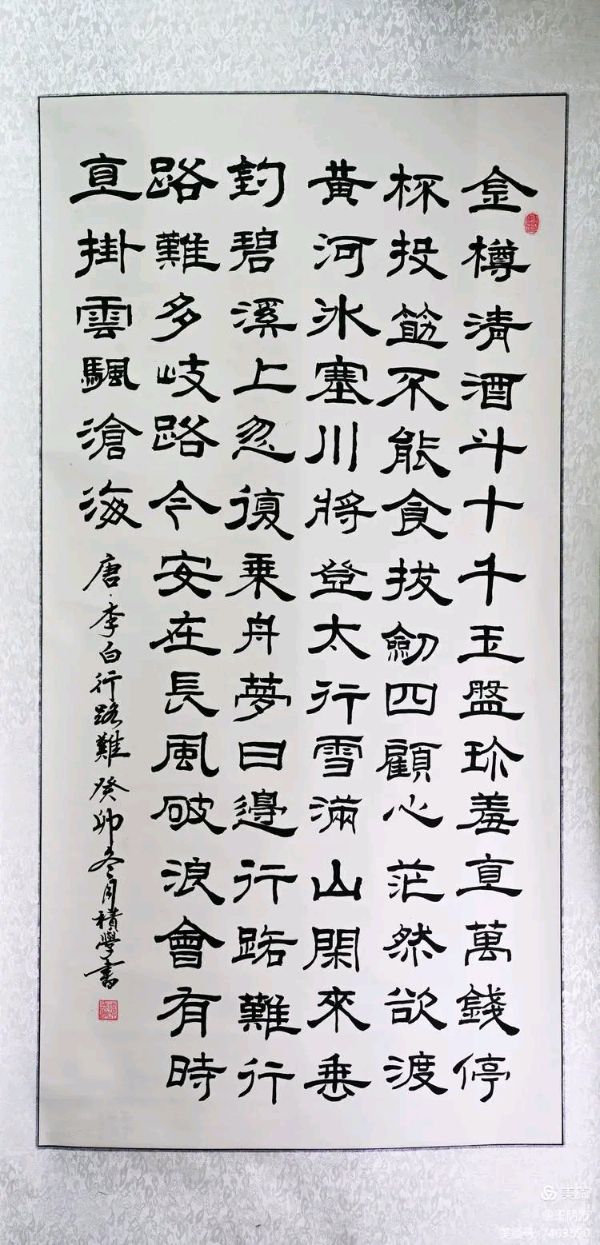 金樽清酒斗十千玉盤珍羞直萬錢停
杯投筯不能食拔劍四顧心茫然欲渡
黃河冰塞川將登太行雪滿山閑來垂
釣碧溪上忽復乘舟夢日邊行路難行
路難多岐路今安在長風破浪會有時
直掛雲颿滄海
唐·李白行路難 癸卯冬月積學書
美篇